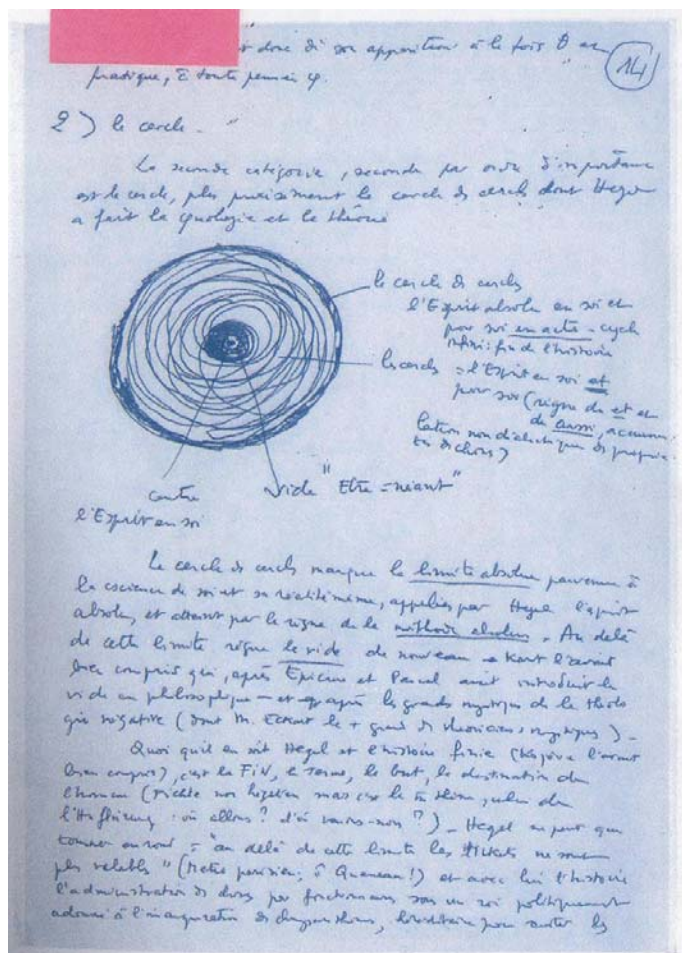 donc di son apparition à la fois θ et
pratique, à toute pensée φ.
14
2) le cercle -
La seconde catégorie, seconde par ordre d'importance
est le cercle, plus précisément le cercle ds cercles dont Hegel
a fait la et la théorie
le cercle ds cercles
l'Esprit absolu en soi et
pour soi en acte - cycle
infini : fin de l'histoire
les cercles = l'Esprit en soi et
pour soi (règne du et et
du aussi, accumu
lation non dialectique ds
)
vide "Etre = néant"
centre
l'Esprit en soi
Le cercle ds cercles marque la limite absolue parvenue à
la cscience de soi et sa réalité même, appelée par Hegel l'esprit
absolu, et atteint par le règne de la méthode absolue. Au delà
de cette limite règne le vide de nouveau Kant l'avait
bien compris qui, après Epicure et Pascal avait introduit le
vide en philosophie - et après les grands mystiques de la théolo
gie négative (dont M. Eckart le + grand ds théoriciens mystiques) -
Quoi qu'il en soit Hegel et l'histoire finie (Kojève l'avait
bien compris), c'est la FIN, le terme, le but, la destination de
l'homme (Fichte mais c'est le m thème, celui de
l'Aufklärung : où allons ? d'où venons-nous ?) - Hegel ne peut que
tourner en rond = "au delà de cette limite les tickets ne sont
plus valables" (métro parisien, ô Queneau !) et avec lui l'histoire
l'administration ds choses par fonctionnaires sous un roi politiquement
adonné à l'inauguration ds chrysanthèmes, héréditaire pour éviter les